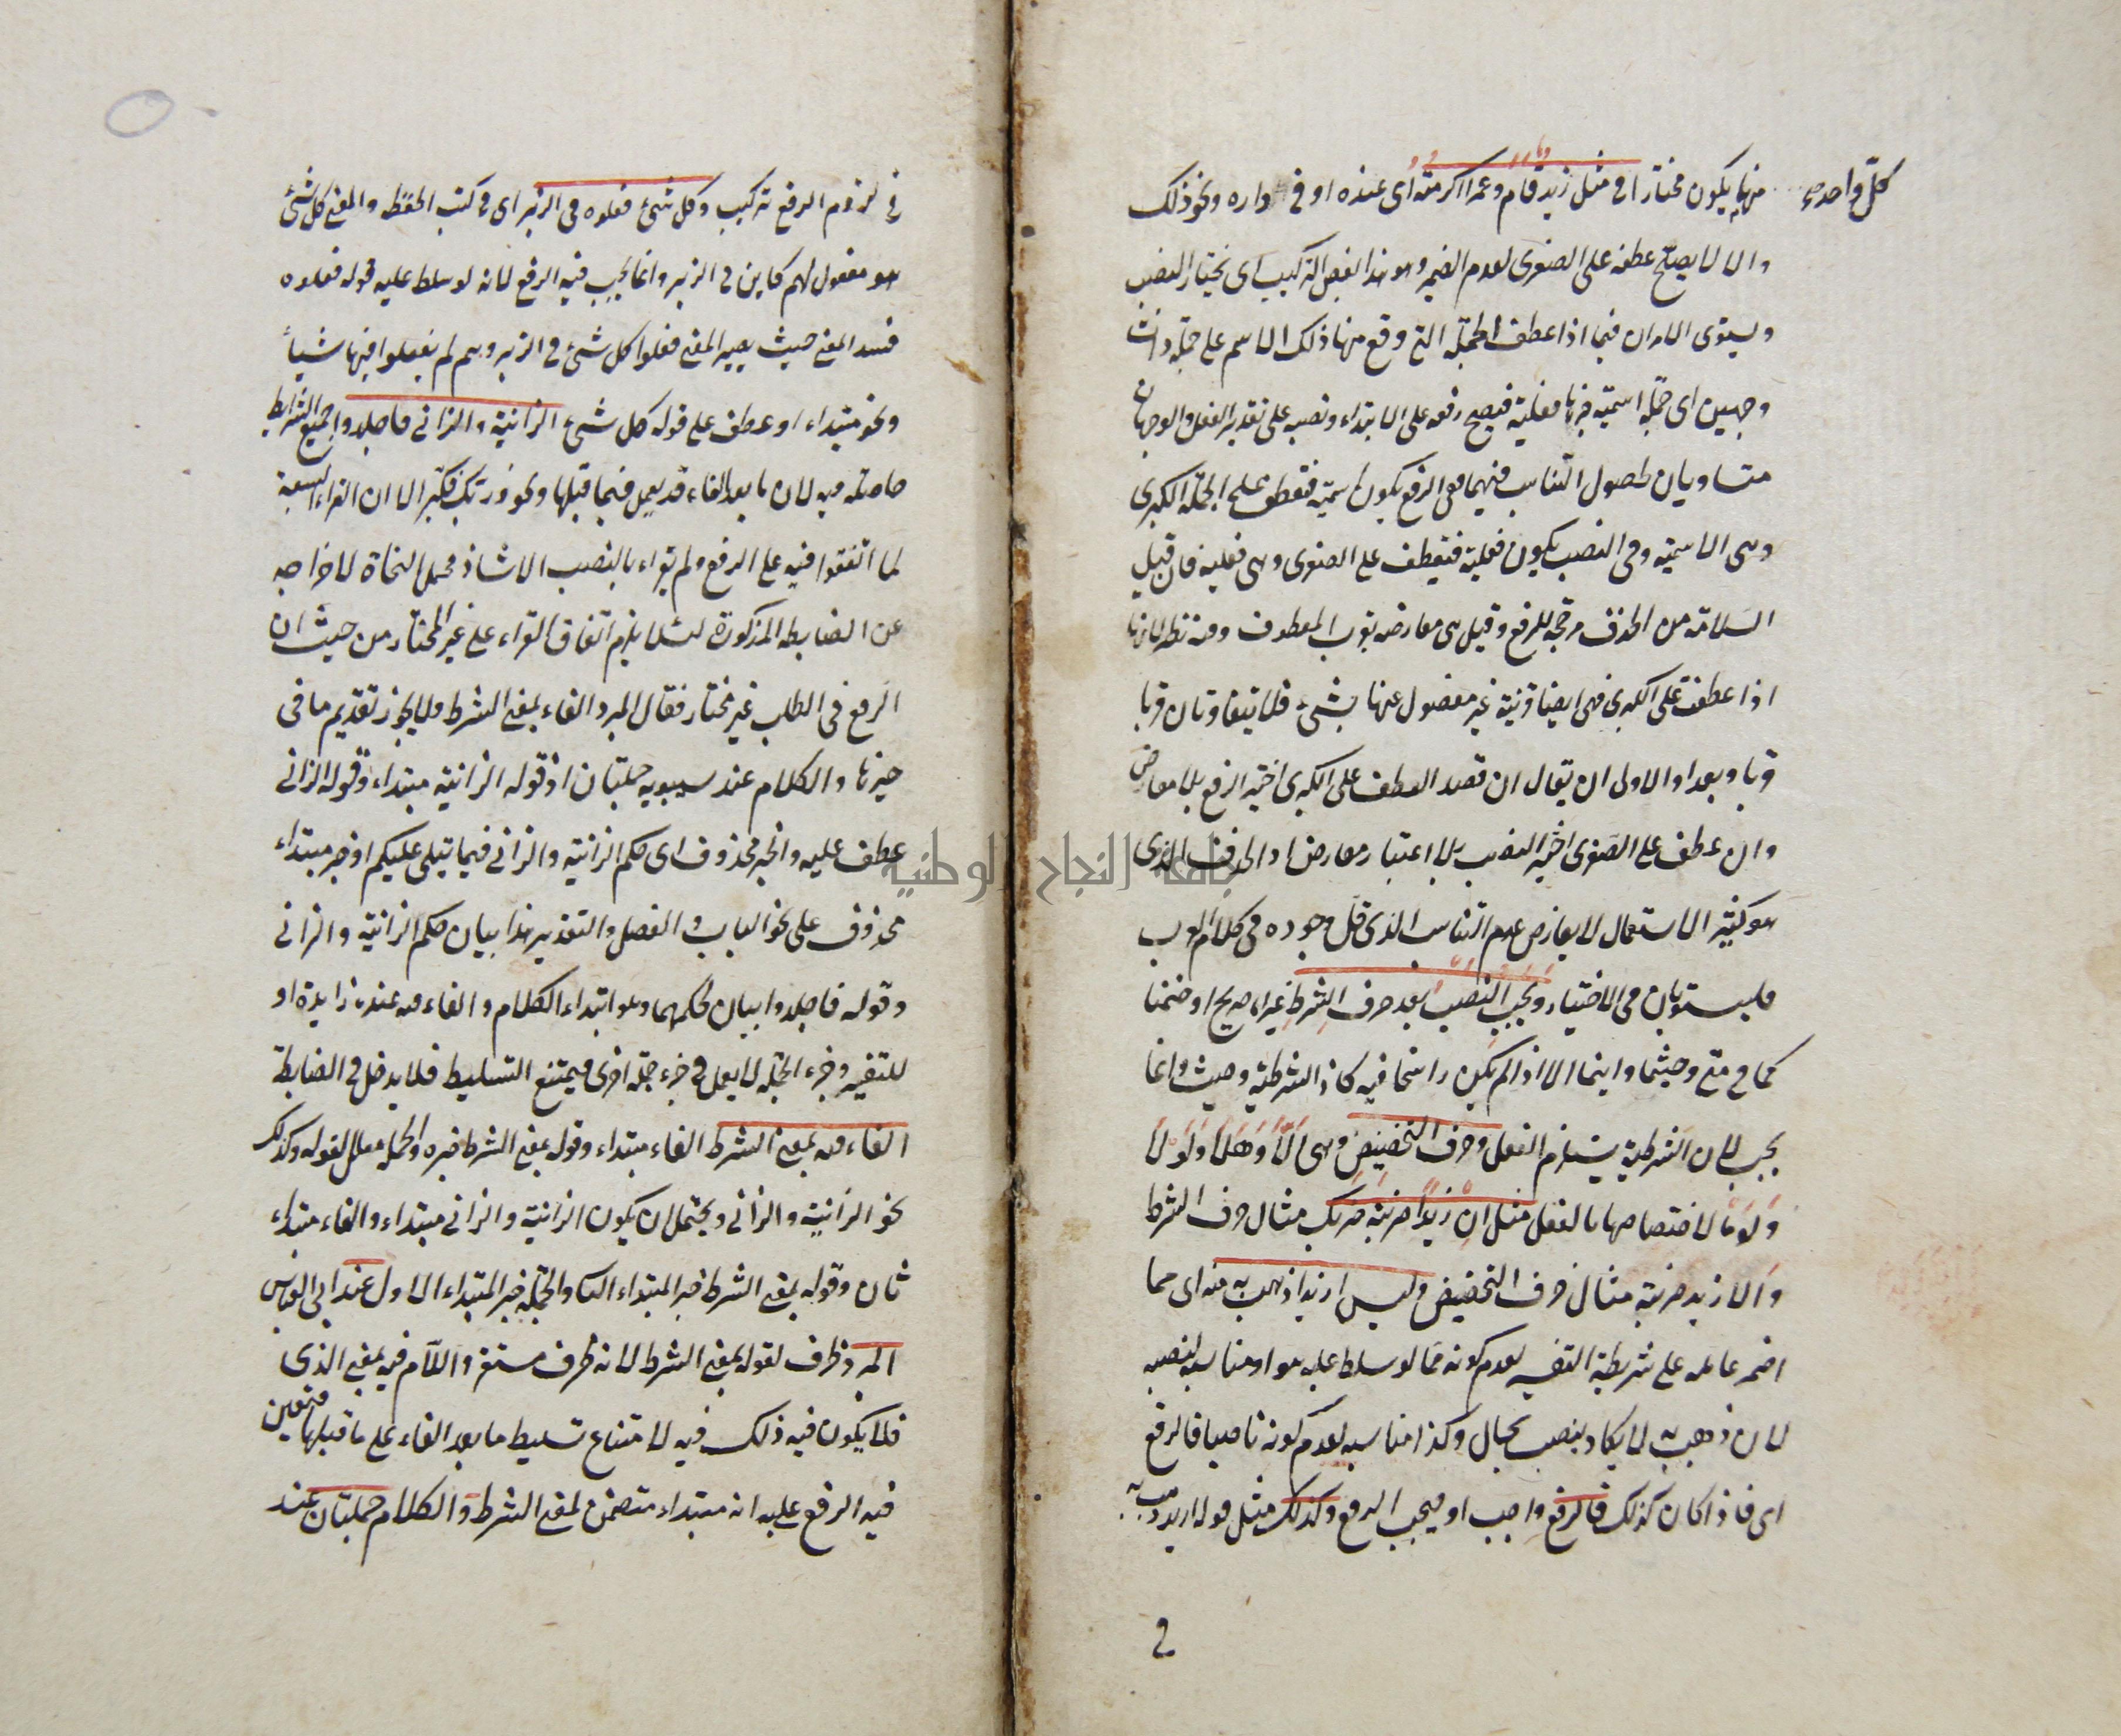 كل واحد
منها يكون مختارا في مثل زيد قام وعمرا اكرمته اى عنده او فى داره ونحو ذلك
والا لا يصلح عطفه على الصغرى لعدم الضمير وهو هذا التركيب اى يختار النصب
ويستوى الامران فيما اذا عطف الجملة التى وقع منها ذلك الاسم على جملة ذات
وجهين اى جملة اسمية خبرها فعلية فيصح رفعه على الابتداء ونصبه على تقدير الفعل والوجهان
متساويان لحصول التناسب فيهما ففى الرفع يكون اسمية فتعطف على الجملة الكبرى
وهى الاسمية وفى النصب يكون فعلية فتعطف على الصغرى وهى فعلية فان قيل
السلامة من الحذف مرجحة للرفع وقيل هى معارضة بقرب المعطوف وفيه نظر لانها
اذا عطفت على الكبرى فهى ايضا قريبة غير مفصول عنها بشئ فلا يتفاوتان قربا
قربا وبعدا والاولى ان يقال ان قصد العطف على الكبرى اختير الرفع بلا معارض
وان عطف على الصغرى اختير النصب بلا اعتبار معارض اذ الحذف الذى
هو كثير الاستعمال لا يعارض عدم التناسب الذى قل وجوده فى كلام العرب
فليستويان فى الاختيار ويجب النصب بعد حرف الشرط غير اما صريحا او ضمنا
كما فى متى وحيثما واينما الا اذا لم يكن راسخا فيه كاذ الشرطية وحيث وانما
يجب لان الشرطية يستلزم الفعل وحرف التحضيض وهى الّا وهلا ولولا
ولوما لاختصاصها بالفعل مثل ان زيدا ضربته ضربك مثال حرف الشرط
والا زيد ضربته مثال حرف التحضيض وليس ازيدا ذهب به منه اى مما
اضمر عامله على شريطة التفسير لعدم كونه مما لو سلط عليه هو او مناسبه لنصبه
لان ذهب به لا يكاد ينصب بحال وكذا مناسبه لعدم كونه ناصبا فالرفع
اى فاذا كان كذلك فالرفع واجب او فيجب الرفع وكذلك مثل قوله ازيد ذهب به
فى
فى لزوم الرفع تركيب وكل شئ فعلوه فى الزبر اى فى كتب الحفظة والمعنى كل شئ
هو مفعول لهم كاين فى الزبر وانما يجب فيه الرفع لانه لو سلط عليه قوله فعلوه
فسد المعنى حيث يصير المعنى فعلوا كل شئ فى الزبر وهم لم يفعلوا فيها شيأ
ونحو مبتداء او عطف على قوله كل شئ الزانية والزانى فاجلدوا جميع الشرايط
حاصلة فيه لان ما بعد الفاء قد يعمل فيما قبلها ونحو وربك فكبر الا ان القراء السبعة
لما اتفقوا فيه على الرفع ولم يقراء بالنصب الا شاذ فحمل النحاة لاخراجه
عن الضابطة المذكورة لئلا يلزم اتفاق القراء على غير المختار من حيث ان
الرفع فى الطلب غير مختار فقال المبرد الفاء بمعنى الشرط ولا يجوز تقديم ما فى
حيزها والكلام عند سيبويه جملتان اذ قوله الزانية مبتداء وقوله الزانى
عطف عليه والخبر محذوف اى حكم الزانية والزانى فيما يتلى عليكم او خبر مبتداء
محذوف على نحو الباب والفصل والتقدير هذا بيان حكم الزانية والزانى
وقوله فاجلدوا بيان لحكمهما وهو ابتداء الكلام والفاء فيه عنده زايدة او
للتفسير وجزء الجملة لا يعمل فى جزء جملة اخرى فيمتنع التسليط فلا يدخل فى الضابطة
الفاء فيه بمعنى الشرط الفاء مبتداء وقوله بمعنى الشرط خبره والجملة معلل لقوله وكذلك
نحو الزانية والزانى ويحتمل ان يكون الزانية والزانى مبتداء والفاء مبتداء
ثان وقوله بمعنى الشرط خبر المبتداء الثانى والجملة خبر المبتداء الاول عند ابى العباس
المبرد ظرف لقوله بمعنى الشرط لانه ظرف مستقر واللام فيه بمعنى الذى
فلا يكون فيه ذلك فيه لامتناع تسليط ما بعد الفاء على ما قبلها فتعين
فيه الرفع عليه انه مبتداء متضمن لمعنى الشرط والكلام جملتان عند
جامعة النجاح الوطنية